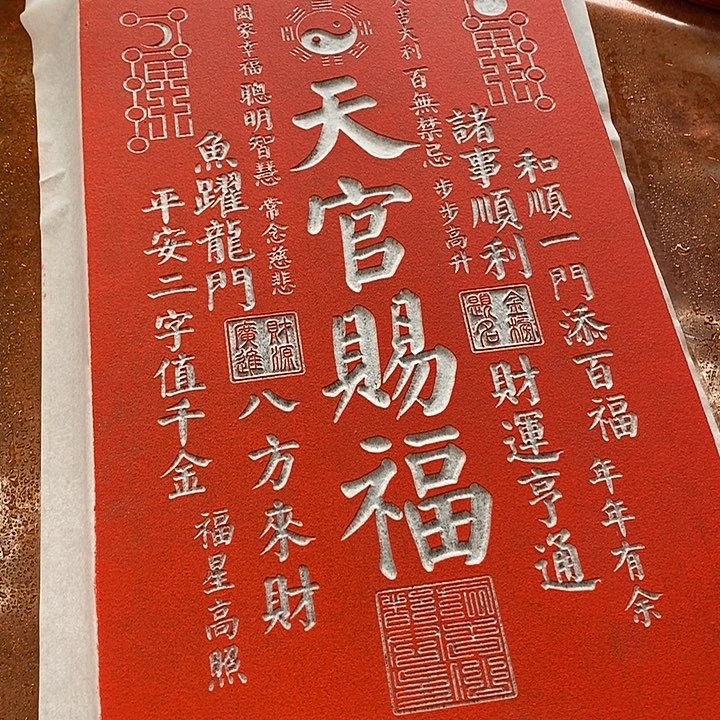 和順一門添百福
年年有余
諸事順利
金榜題名
財運亨通
大吉大利
百無禁忌
步步高升
天官賜福
闔家幸福
聰明智慧
常念慈悲
魚躍龍門
財源廣進
八方來財
平安二字值千金
福星高照